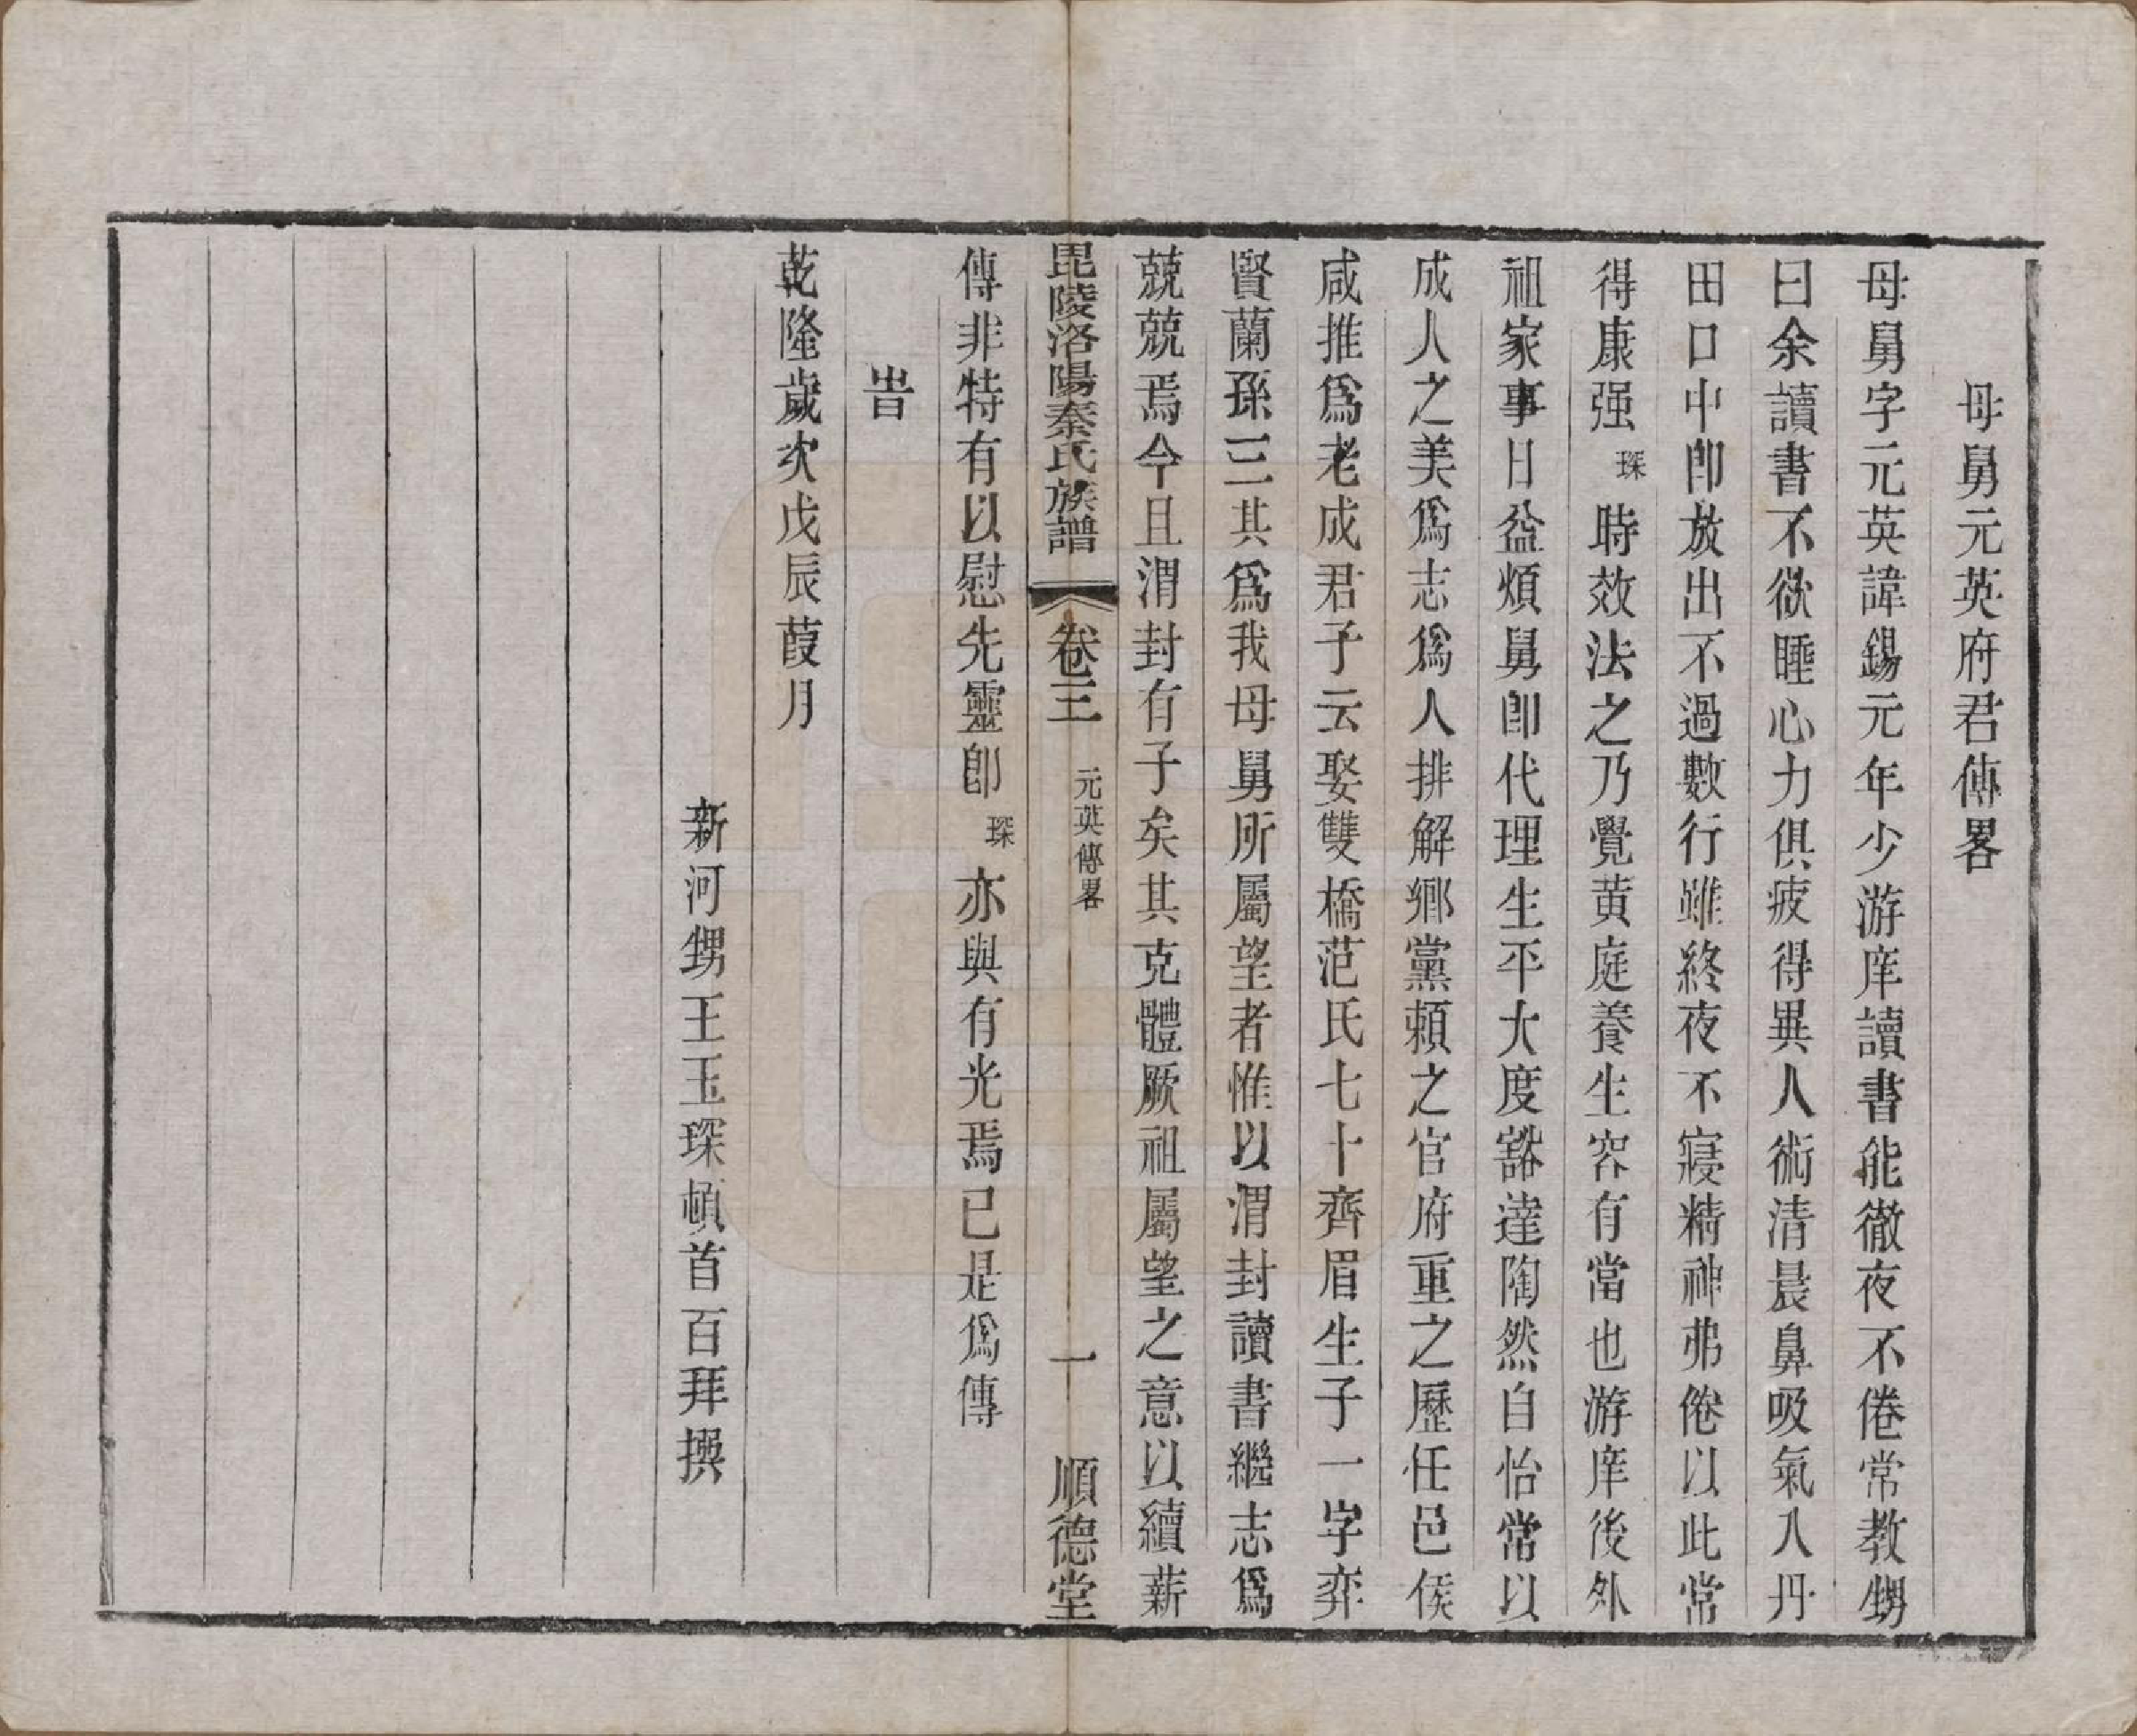 母舅元英府君傳畧
母舅字元英諱錫元年少游庠讀書能徹夜不倦常教甥
曰余讀書不欲睡心力俱疲得異人術清晨鼻吸氣入丹
田口中卽放出不過數行雖終夜不寢精神弗倦以此常
得康强琛時效法之乃覺黄庭養生容有當也游庠後外
祖家事日益煩舅卽代理生平大度豁達陶然自怡常以
成人之美爲志爲人排解鄉黨頼之官府重之歷任邑侯
咸推爲老成君子云娶雙橋范氏七十齊眉生子一字弈
賢蘭孫三其爲我母舅所屬望者惟以渭封讀書繼志爲
兢兢焉今且渭封有子矣其克體厥祖屬望之意以續薪
毘陵洛陽秦氏族譜 卷三 元英傳畧 一 順德堂
傳非特有以慰先靈卽琛亦與有光焉已是爲傳
旹
乾隆歲次戊辰葭月
新河甥王玉琛頓首百拜撰